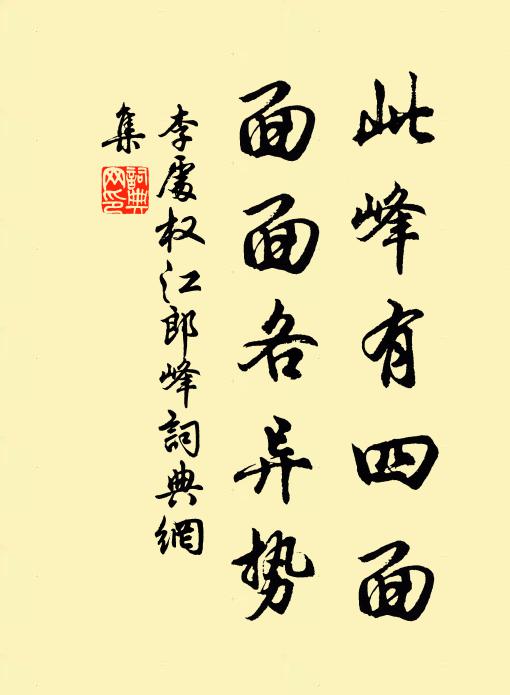 此峰有四面
面面各异势
李處权江郎峰詞典網
集
詞典
网印